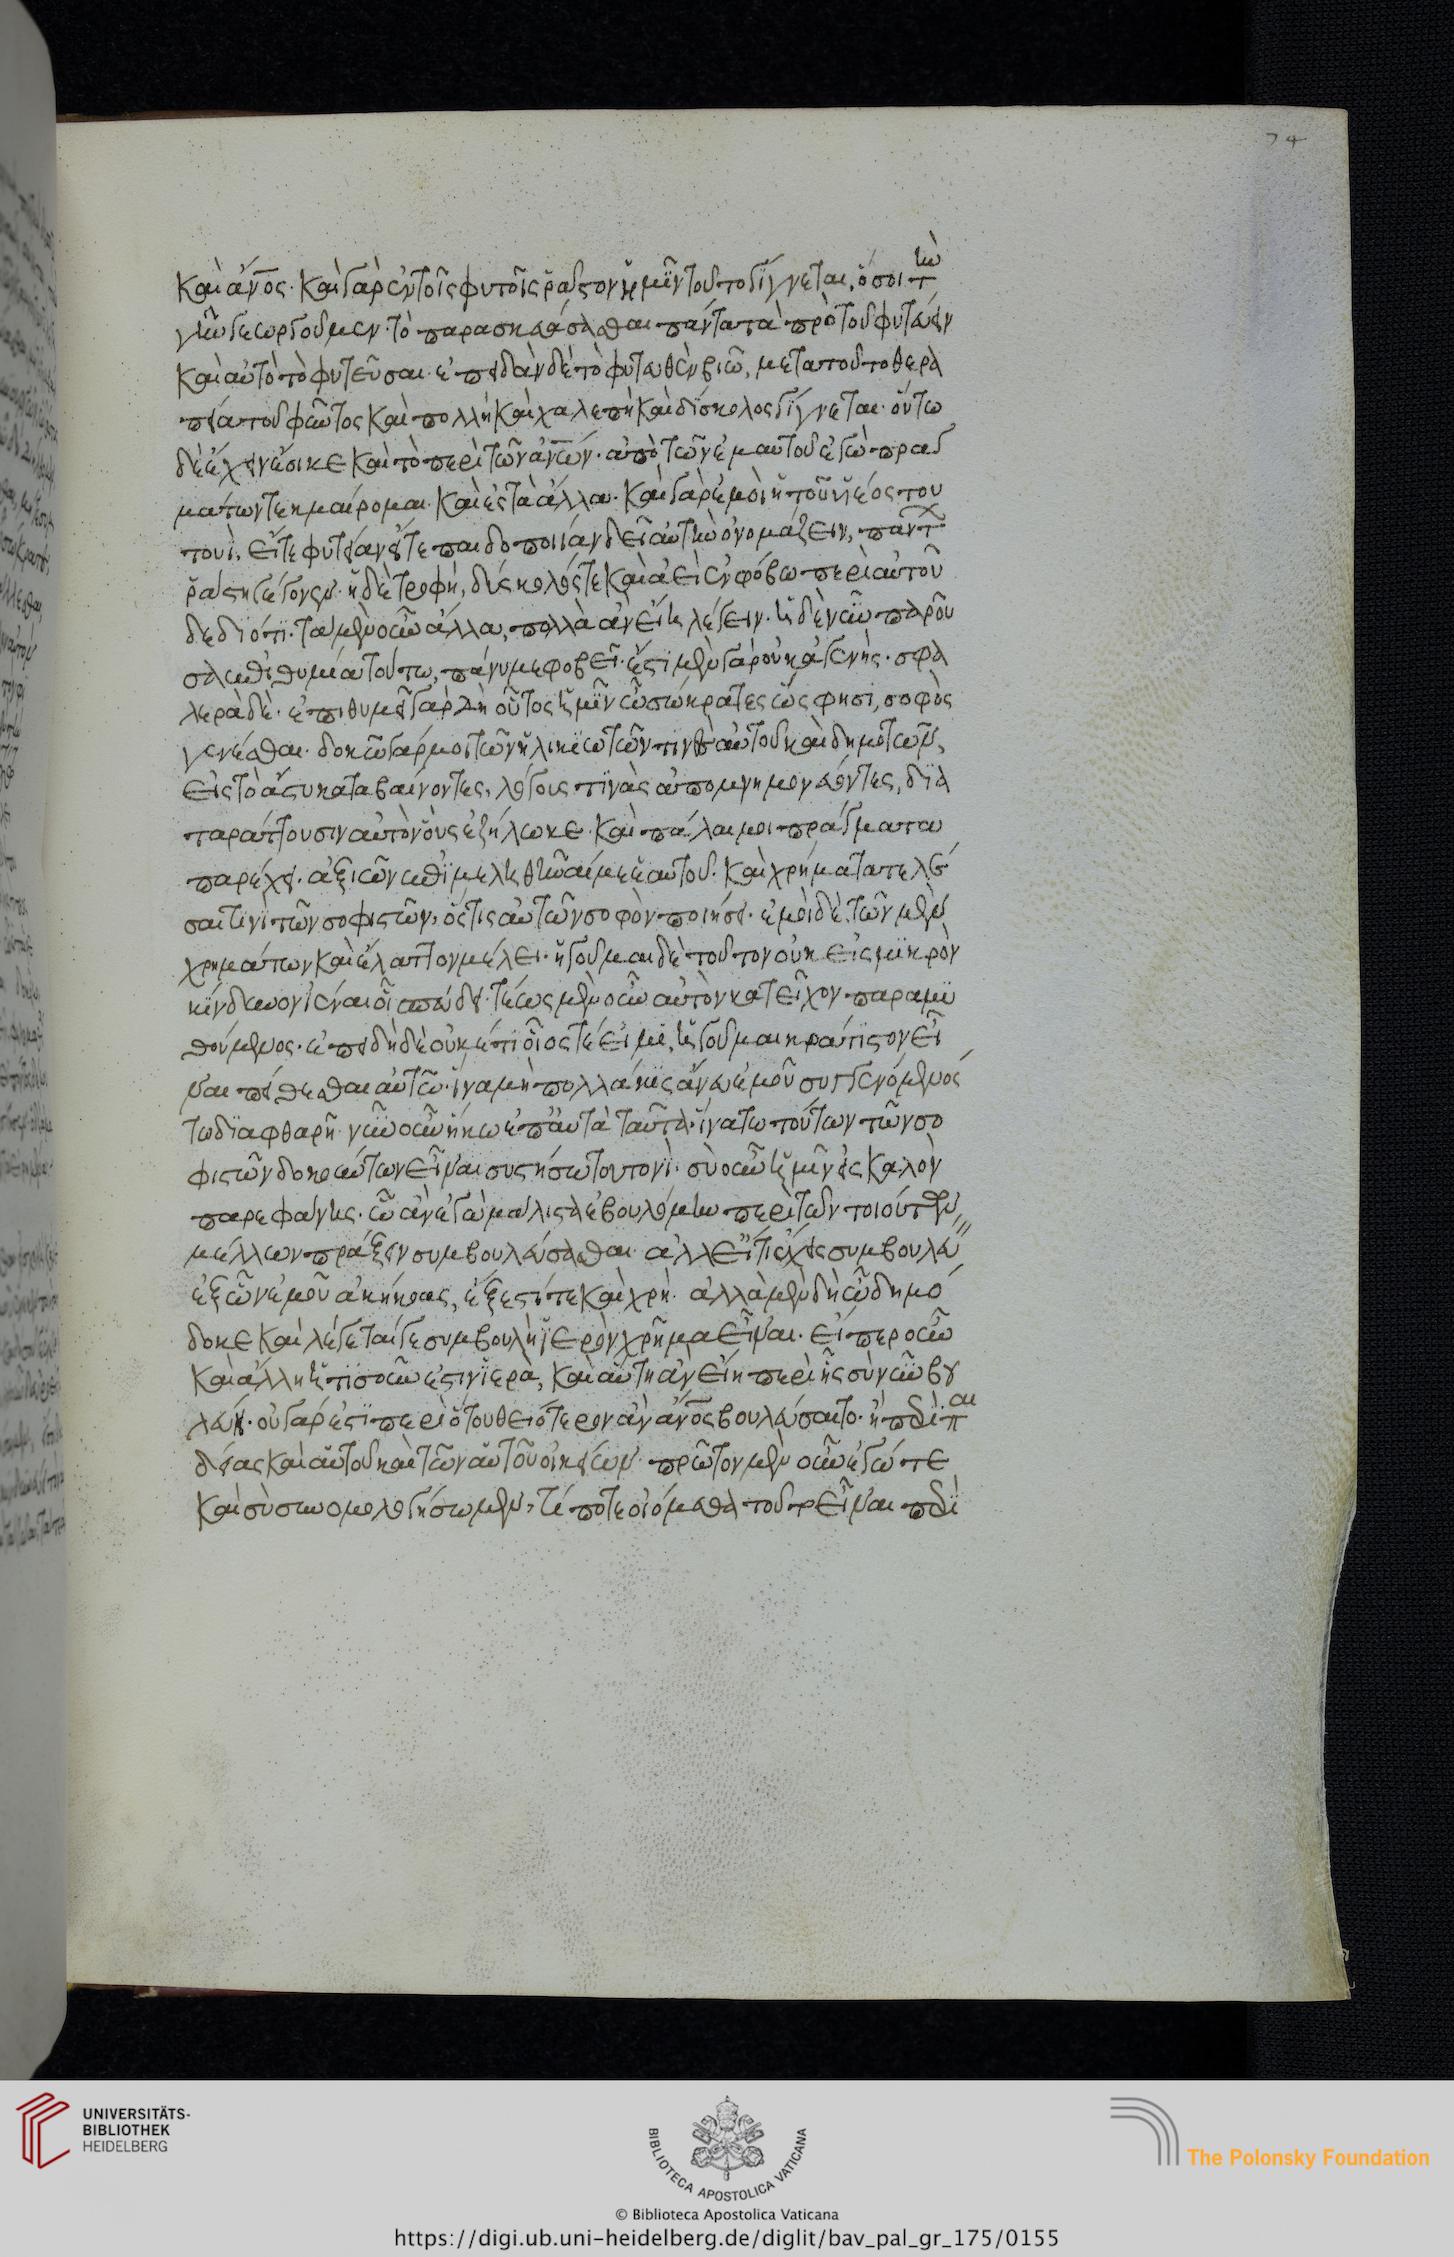 καὶ ἄν̅ος. καὶ γὰρ ἐν τοῖς φυτοῖς ῥᾷστον ἡμῖν τοῦτο γίγνεται, ὅσοι τὴν
γῆν γεωργοῦμεν. τὸ παρασκευάσασθαι πάντα τὰ πρὸ τοῦ φυτεύειν
καὶ αὐτὸ τὸ φυτεῦσαι. ἐπειδὰν δὲ τὸ φυτευθὲν βιῶ, μετα τοῦτο θερα
πεία τοῦ φῶντος καὶ πολλὴ καὶ χαλεπὴ καὶ δύσκολος γίγνεται. οὕτω
δὲ ἔχειν ἔοικε καὶ τὸ περὶ τῶν ἀν̅ων. ἀπὸ τῶν ἐμαυτοῦ ἐγὼ πραγ
μάτων τεκμαίρομαι. καὶ ἐς τὰ ἄλλα. καὶ γὰρ ἐμοὶ ἡ τοῦ υἱέος του
τουὶ, εἴτε φυτείαν εἴτε παιδοποιίαν δεῖ αὐτὴν ὀνομάζειν, πάντων
ῥάστη γέγονεν. ἡ δὲ τροφὴ, δύσκολός τε καὶ ἀεὶ ἐν φόβω περὶ αὐτοῦ
δεδιότι. τὰ μὲν οὖν ἄλλα, πολλὰ ἂν εἴη λέγειν. ἡ δὲ νῦν παροῦ
σα ἐπιθυμία τούτω, πάνυ με φοβεῖ. ἔστι μὲν γὰρ οὐκ ἀγενὴς. σφα
λερὰ δὲ. ἐπιθυμεῖ γὰρ δὴ οὗτος ἡμῖν ὦ σώκρατες ὥς φησι, σοφὸς
γενέσθαι. δοκῶ γάρ μοι τῶν ἡλικιωτῶν τινὲς αὐτοῦ καὶ δημοτῶν,
εἰς τὸ ἄστυ καταβαίνοντες, λόγους τινὰς ἀπομνημονεύοντες, δια
ταράττουσιν αὐτὸν οὓς ἐζήλωκε. καὶ πάλαι μοι πράγματα
παρέχει. ἀξιῶν ἐπιμεληθῆναί με ἑαυτοῦ. καὶ χρήματα τελέ
σαι τινὶ τῶν σοφιστῶν, ὅστις αὐτῶν σοφὸν ποιήσει. ἐμοὶ δὲ τῶν μὲν
χρημάτων καὶ ἔλαττον μέλει. ἡγοῦμαι δὲ τοῦτον οὐκ εἰς μικρὸν
κίνδυνον ἰέναι οἷ σπεύδει. τέως μὲν οὖν αὐτὸν κατεῖχον παραμυ
θούμενος. ἐπειδὴ δὲ οὐκέτι οἷός τέ εἰμι, ἡγοῦμαι κράτιστον εἶ
ναι πείθεσθαι αὐτῶ. ἵνα μὴ πολλάκις ἄνευ ἐμοῦ συγγενόμενος
τω διαφθαρῆ. νῦν οὖν ἥκω ἐπ' αὐτὰ ταῦτα. ἵνα τω τούτων τῶν σο
φιστῶν δοκούντων εἶναι συστήσω τουτονὶ. σὺ οὖν ἡμῖν εἰς καλὸν
παρεφάνης. ὧ ἂν ἐγὼ μάλιστα ἐβουλόμην περὶ τῶν τοιούτων
μέλλων πράξειν συμβουλεύσασθαι. ἀλλ' εἴ τι ἔχεις συμβουλεύ
ἐξ ὧν ἐμοῦ ἀκήκοας, ἔξεστί τε καὶ χρή. ἀλλὰ μὲν δὴ ὦ δημό
δοκε καὶ λέγεταί γε συμβουλὴ ἱερὸν χρῆμα εἶναι. εἴπερ οὖν
καὶ ἄλλη ἡτισοῦν ἐστὶν ἱερὰ, καὶ αὕτη ἂν εἴη περὶ ἧς σὺ νῦν βου
λεύη. οὐ γάρ ἐστι περὶ ὅτου θειότερον ἂν ἄν̅ος βουλεύσαιτο. ἢ περὶ παι
δείας καὶ αὑτοῦ καὶ τῶν αὑτοῦ οἰκείων. πρῶτον μὲν οὖν ἐγώ τε
καὶ σὺ συνομολογήσωμεν, τί ποτε οἰόμεθα τοῦτ' εἶναι περὶ
74
UNIVERSITÄTS-
BIBLIOTHEK
HEIDELBERG
BIBLIOTECA APOSTOLICA VATICANA
The Polonsky Foundation
© Biblioteca Apostolica Vaticana
https://digi.ub.uni-heidelberg.de/diglit/bav_pal_gr_175/0155